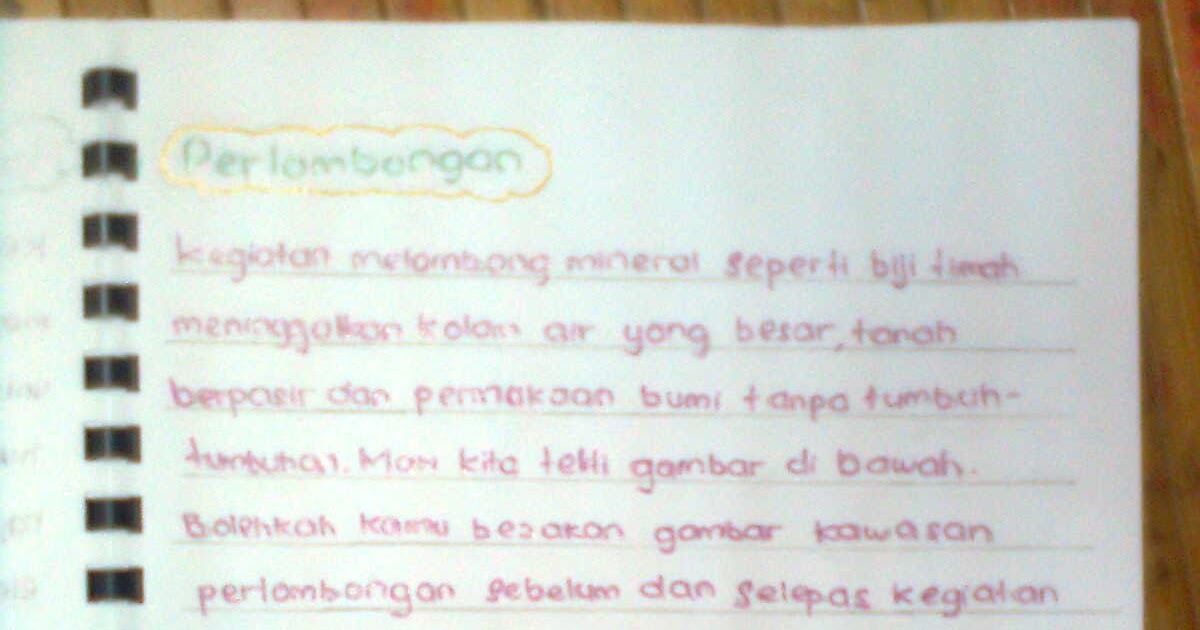 Perlombongan
Kegiatan melombong mineral seperti biji timah
meninggalkan kolam air yang besar, tanah
berpasir dan permukaan bumi tanpa tumbuh-
tumbuhan. Mari kita teliti gambar di bawah.
Bolehkah kamu bezakan gambar kawasan
perlombongan sebelum dan selepas kegiatan